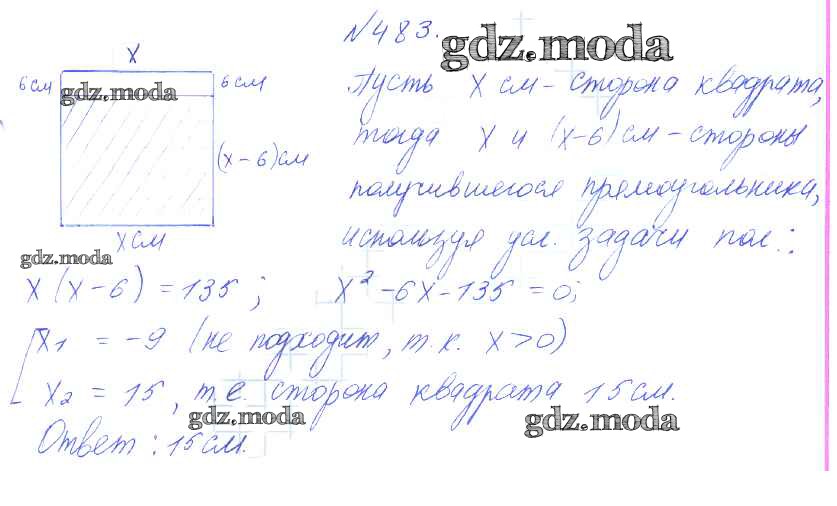 №483.
gdz.moda
x
6 см
6 см
gdz.moda
Пусть x см – сторона квадрата,
тогда x и (x-6) см – стороны
(x-6) см
получившегося прямоугольника,
x см
используя усл. задачи пол.:
gdz.moda
x(x-6) = 135; x² - 6x - 135 = 0;
x₁ = -9 (не подходит, т.к. x>0)
x₂ = 15, т.е. сторона квадрата 15 см.
gdz.moda
gdz.moda
Ответ: 15 см.